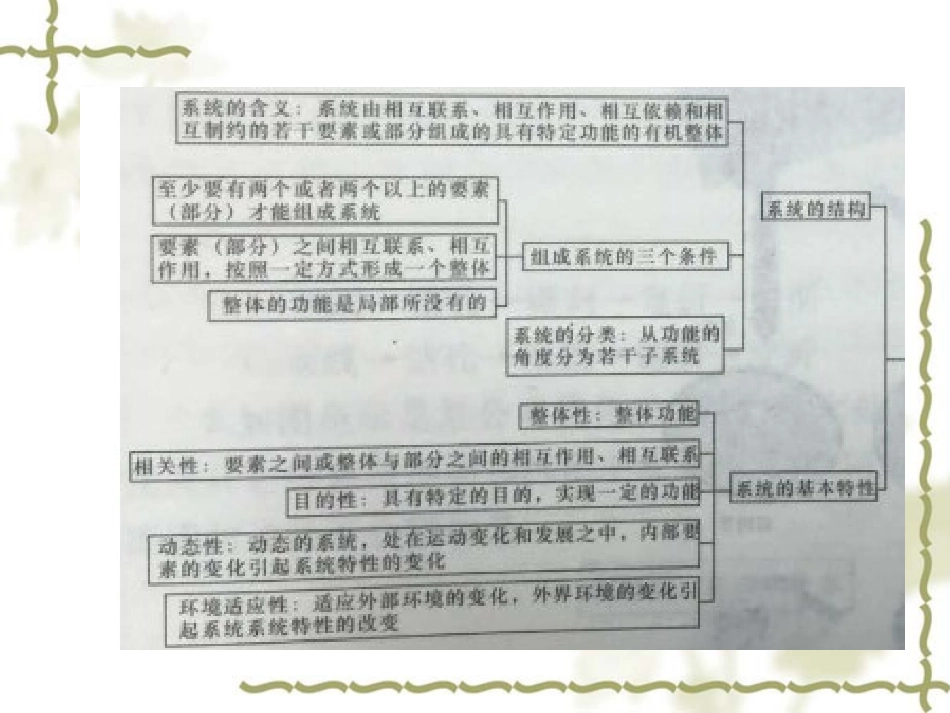 系统的含义：系统由相互联系、相互作用、相互依赖和相
互制约的若干要素或部分组成的具有特定功能的有机整体
至少要有两个或者两个以上的要素
（部分）才能组成系统
要素（部分）之间相互联系、相互
作用，按照一定方式形成一个整体
整体的功能是局部所没有的
组成系统的三个条件
系统的分类：从功能的
角度分为若干子系统
系统的结构
整体性：整体功能
相关性：要素之间或整体与部分之间的相互作用、相互联系
目的性：具有特定的目的，实现一定的功能
动态性：动态的系统，处在运动变化和发展之中，内部要
素的变化引起系统特性的变化
环境适应性：适应外部环境的变化，外界环境的变化引
起系统系统特性的改变
系统的基本特性